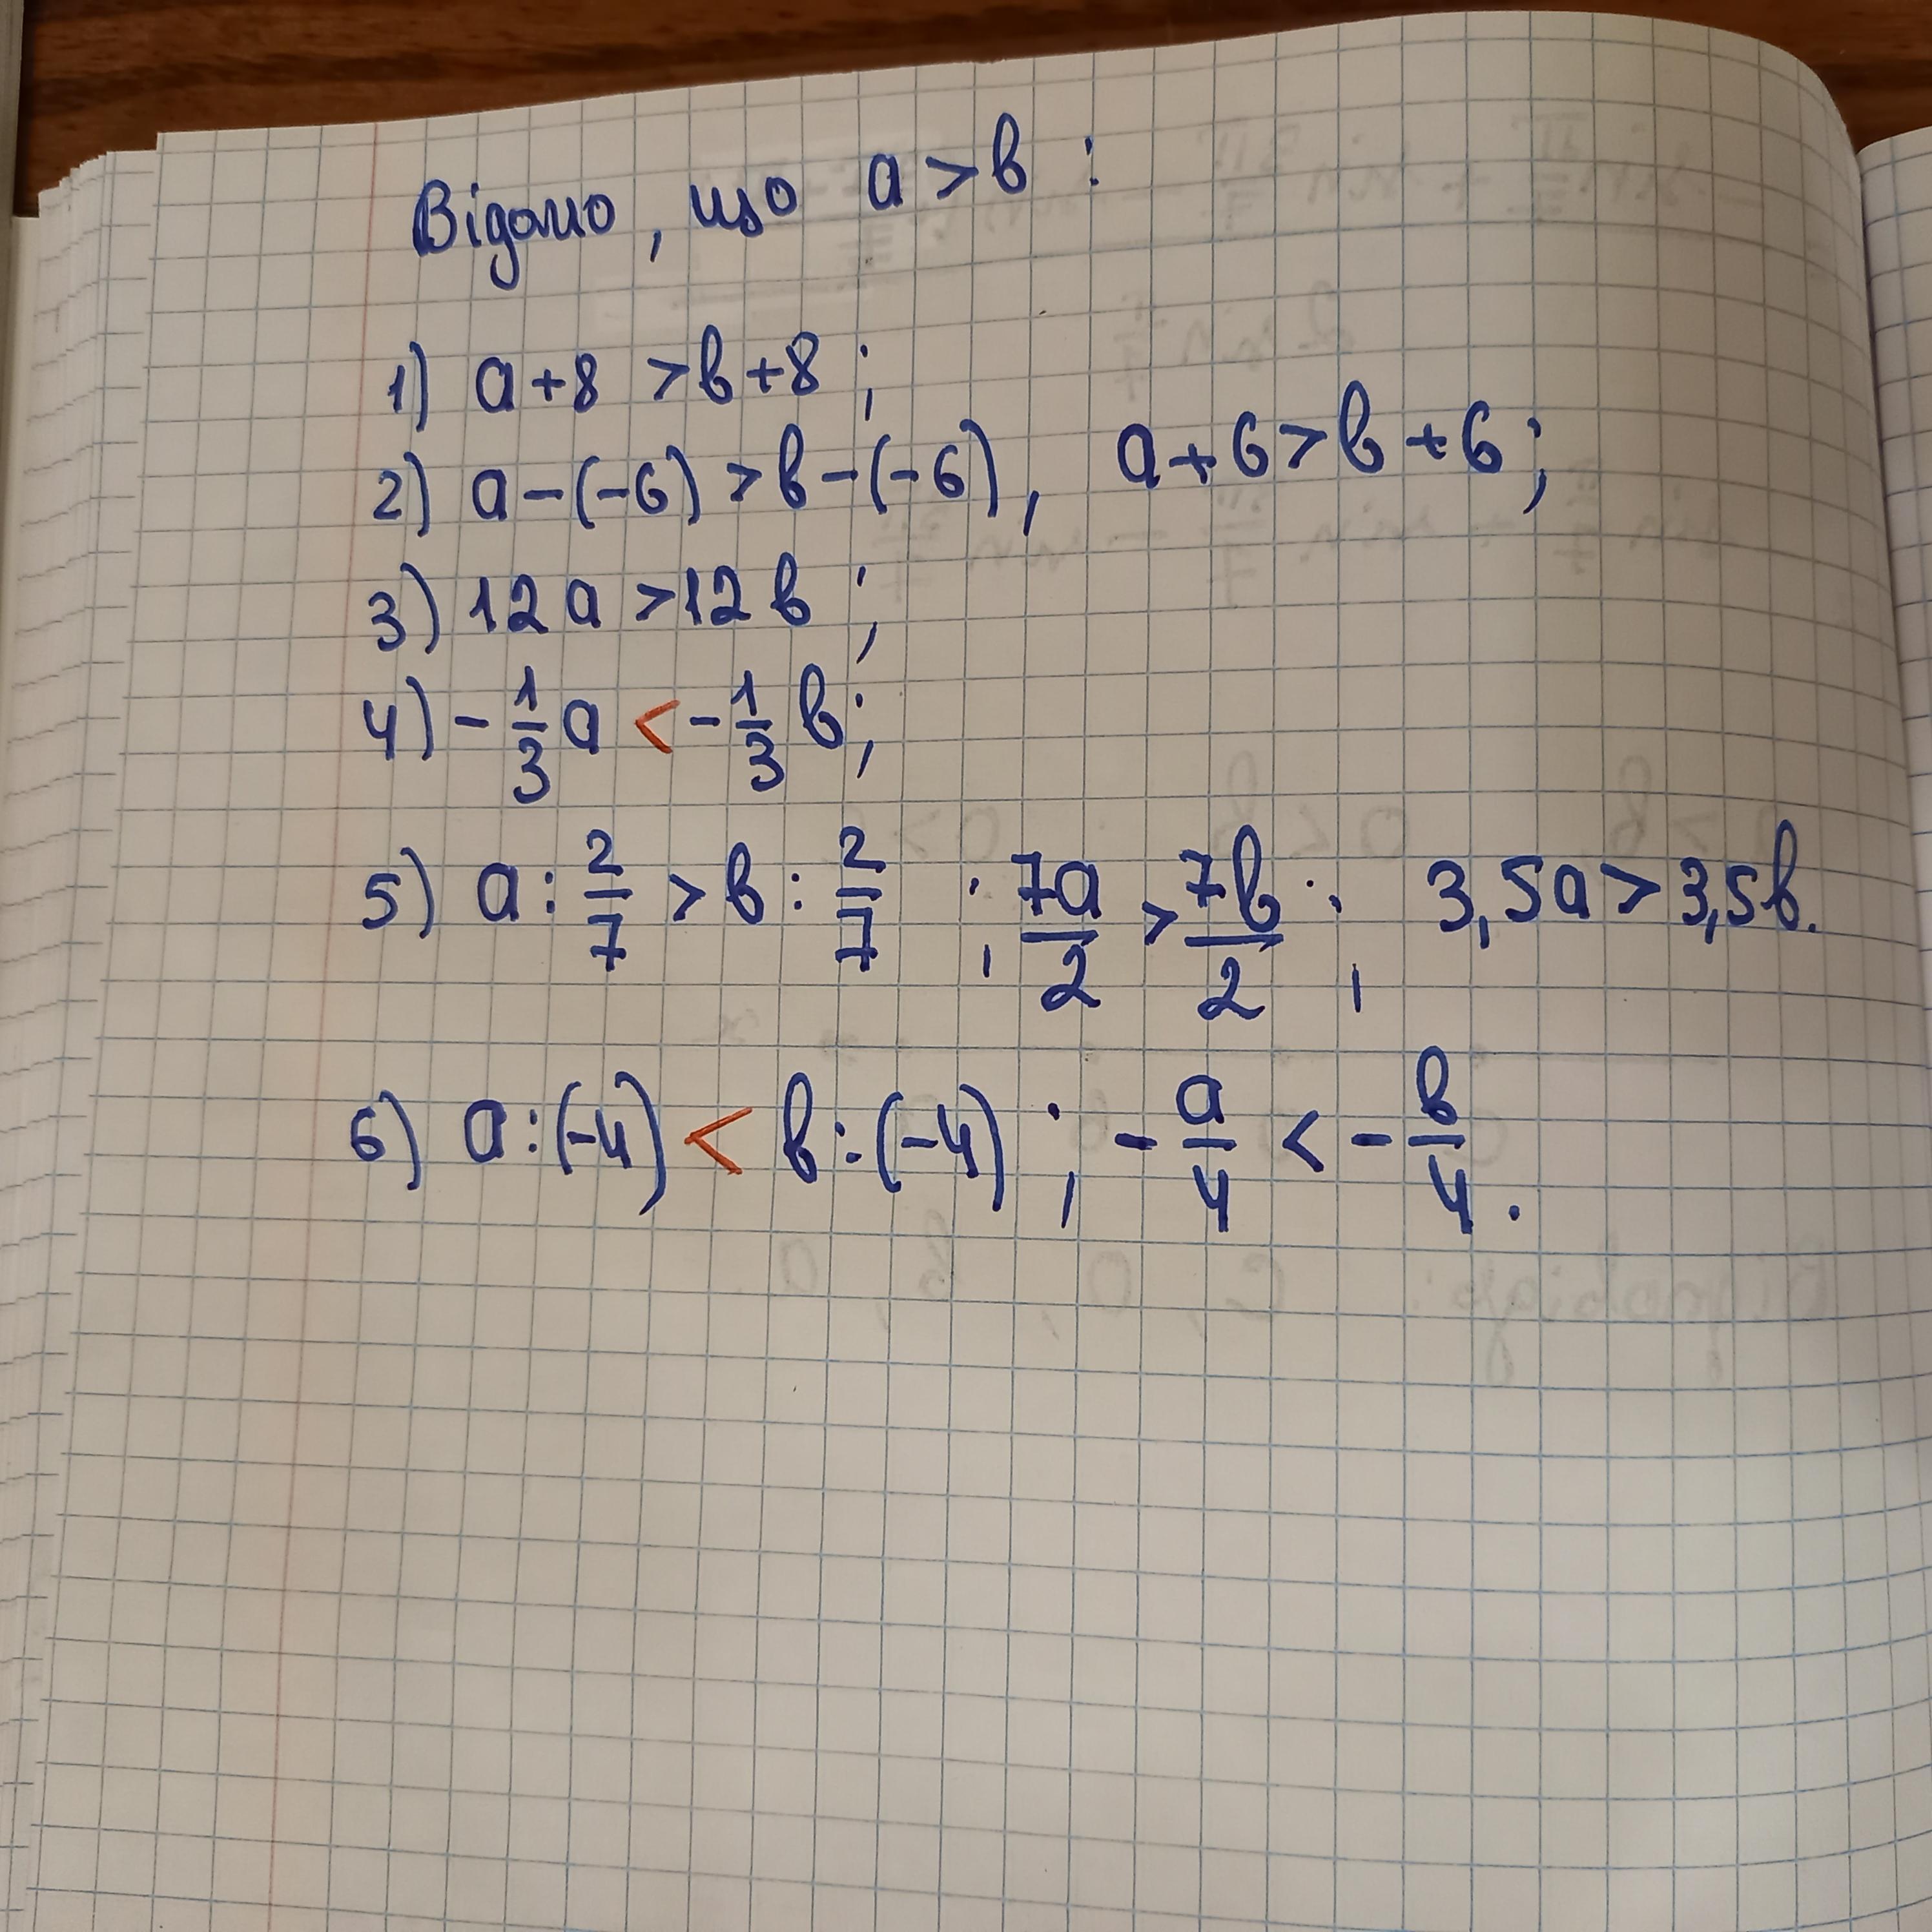 Відомо, що a > b :
1) a + 8 > b + 8 ;
2) a - (-6) > b - (-6) , a + 6 > b + 6 ;
3) 12 a > 12 b ;
4) - 1/3 a < - 1/3 b ;
5) a : 2/7 > b : 2/7 ; 7a/2 > 7b/2 ; 3,5a > 3,5b.
6) a : (-4) < b : (-4) ; - a/4 < - b/4 .